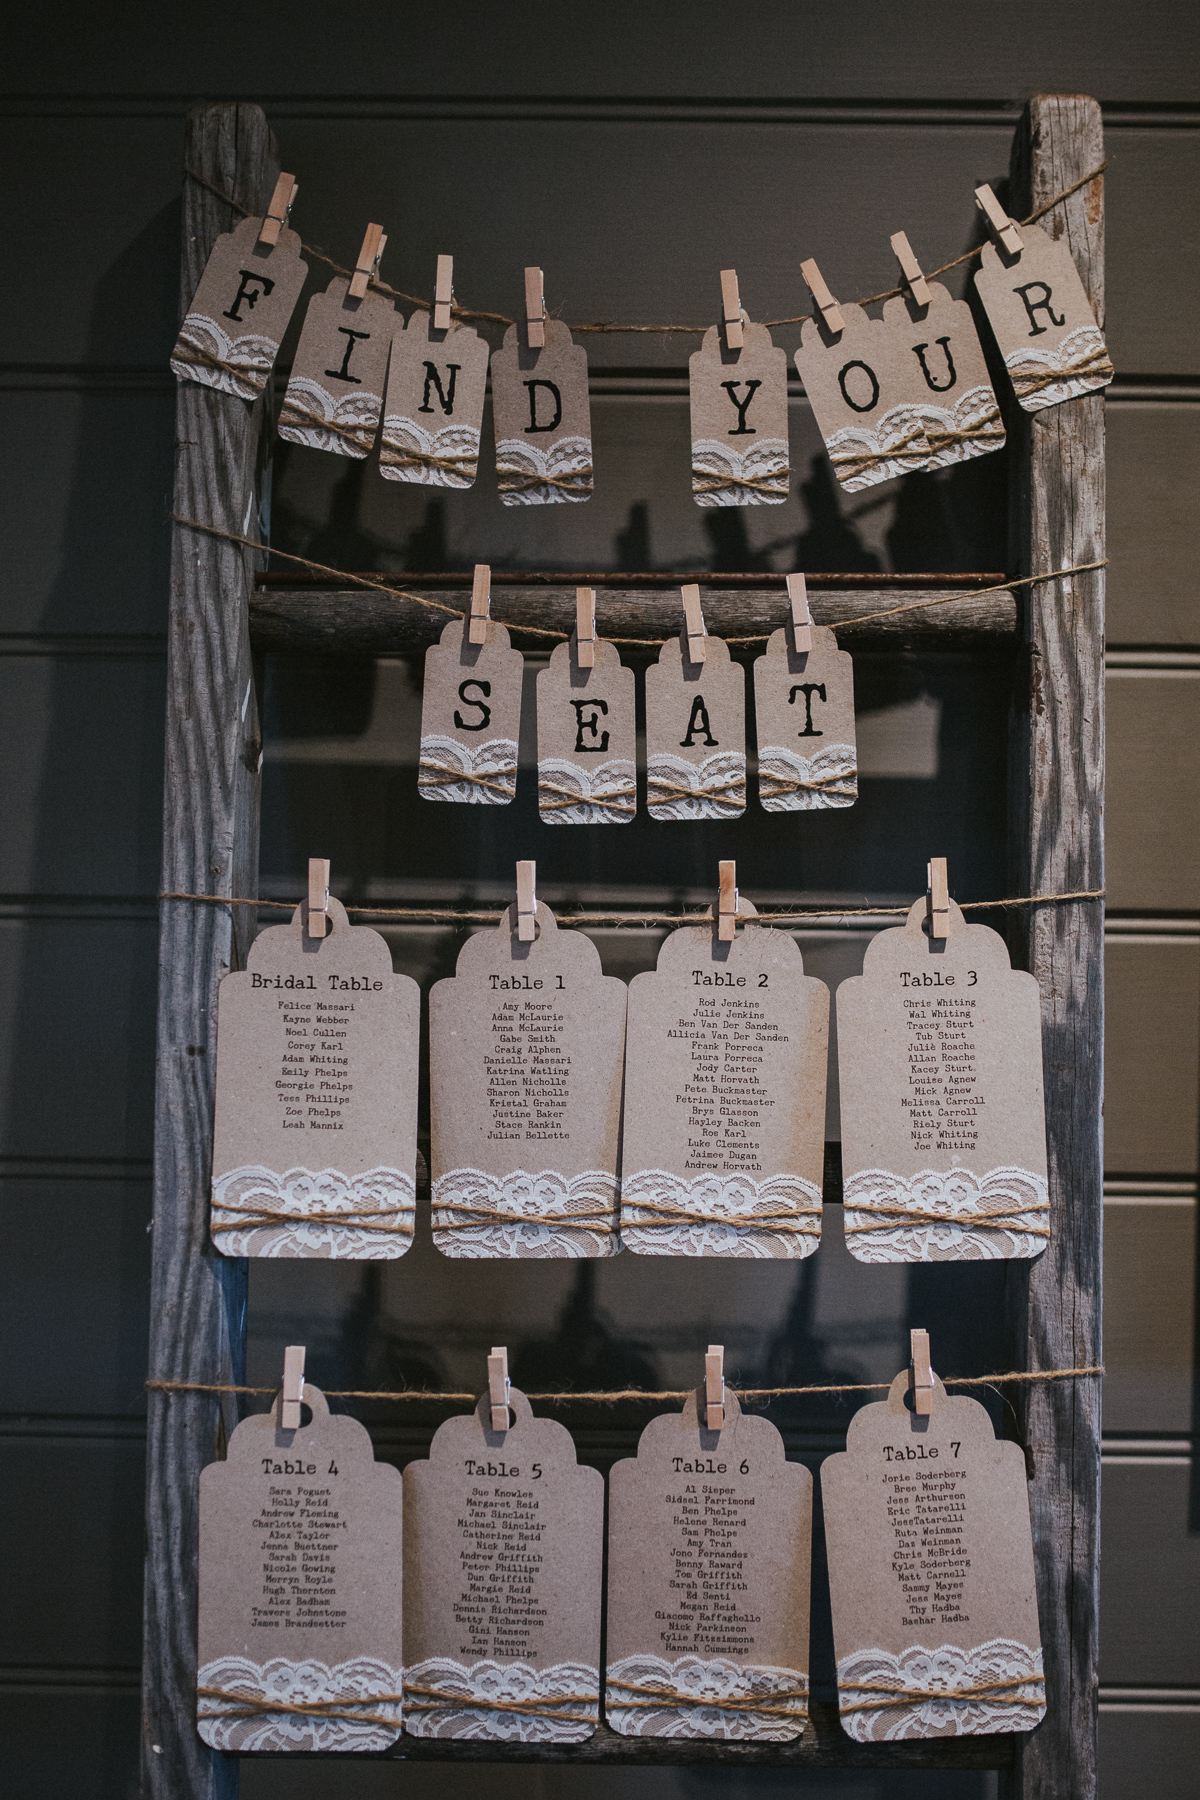 FIND YOUR
SEAT
Bridal Table
Felice Massari
Kayne Webber
Noel Cullen
Corey Karl
Adam Whiting
Emily Phelps
Georgie Phelps
Tess Phillips
Zoe Phelps
Leah Mannix
Table 1
Amy Moore
Adam McLaurie
Anna McLaurie
Gabe Smith
Craig Alphen
Danielle Massari
Katrina Watling
Allen Nicholls
Sharon Nicholls
Kristal Graham
Justine Baker
Stace Rankin
Julian Bellette
Table 2
Rod Jenkins
Julie Jenkins
Ben Van Der Sanden
Allicia Van Der Sanden
Frank Porreca
Laura Porreca
Jody Carter
Matt Horvath
Pete Buckmaster
Petrina Buckmaster
Brys Glasson
Hayley Backen
Ros Karl
Luke Clements
Jaimee Dugan
Andrew Horvath
Table 3
Chris Whiting
Wal Whiting
Tracey Sturt
Tub Sturt
Julie Roache
Allan Roache
Kacey Sturt
Louise Agnew
Mick Agnew
Melissa Carroll
Matt Carroll
Riely Sturt
Nick Whiting
Joe Whiting
Table 4
Sara Foguet
Holly Reid
Andrew Fleming
Charlotte Stewart
Alex Taylor
Jenna Buettner
Sarah Davis
Nicole Gowing
Merryn Royle
Hugh Thornton
Alex Badham
Travers Johnstone
James Brandsetter
Table 5
Sue Knowles
Margaret Reid
Jan Sinclair
Michael Sinclair
Catherine Reid
Nick Reid
Andrew Griffith
Peter Phillips
Dun Griffith
Margie Reid
Michael Phelps
Dennis Richardson
Betty Richardson
Gini Hanson
Ian Hanson
Wendy Phillips
Table 6
Al Sieper
Sidsel Farrimond
Ben Phelps
Helene Renard
Sam Phelps
Amy Tran
Jono Fernandes
Benny Raward
Tom Griffith
Sarah Griffith
Ed Senti
Megan Reid
Giacomo Raffaghello
Nick Parkinson
Kylie Fitzsimmons
Hannah Cummings
Table 7
Jorie Soderberg
Bree Murphy
Jess Arthurson
Eric Tatarelli
JessTatarelli
Ruta Weinman
Das Weinman
Chris McBride
Kyle Soderberg
Matt Carnell
Sammy Mayes
Jess Mayes
Thy Hadba
Bashar Hadba